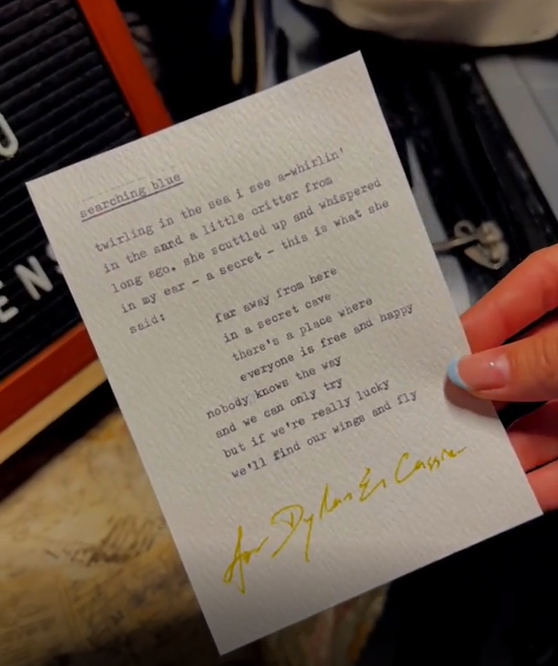 searching blue
twirling in the sea i see a-whirlin'
in the sand a little critter from
long ago. she scuttled up and whispered
in my ear - a secret - this is what she
said:
far away from here
in a secret cave
there's a place where
everyone is free and happy
nobody knows the way
and we can only try
but if we're really lucky
we'll find our wings and fly
for Dylan & Cassie
O
ENS